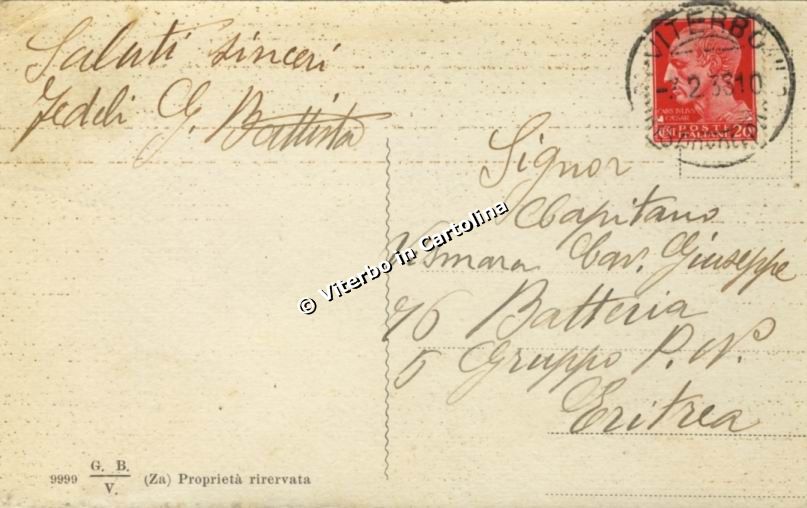 Saluti sinceri
Fedeli G. Battista
VITERBO
POSTE
ITALIANE 20
Signor
Capitano
Vismara Cav. Giuseppe
76 Batteria
5 Gruppo P. N.
Eritrea
© Viterbo in Cartolina
9999 G. B. V. (Za) Proprietà rirervata